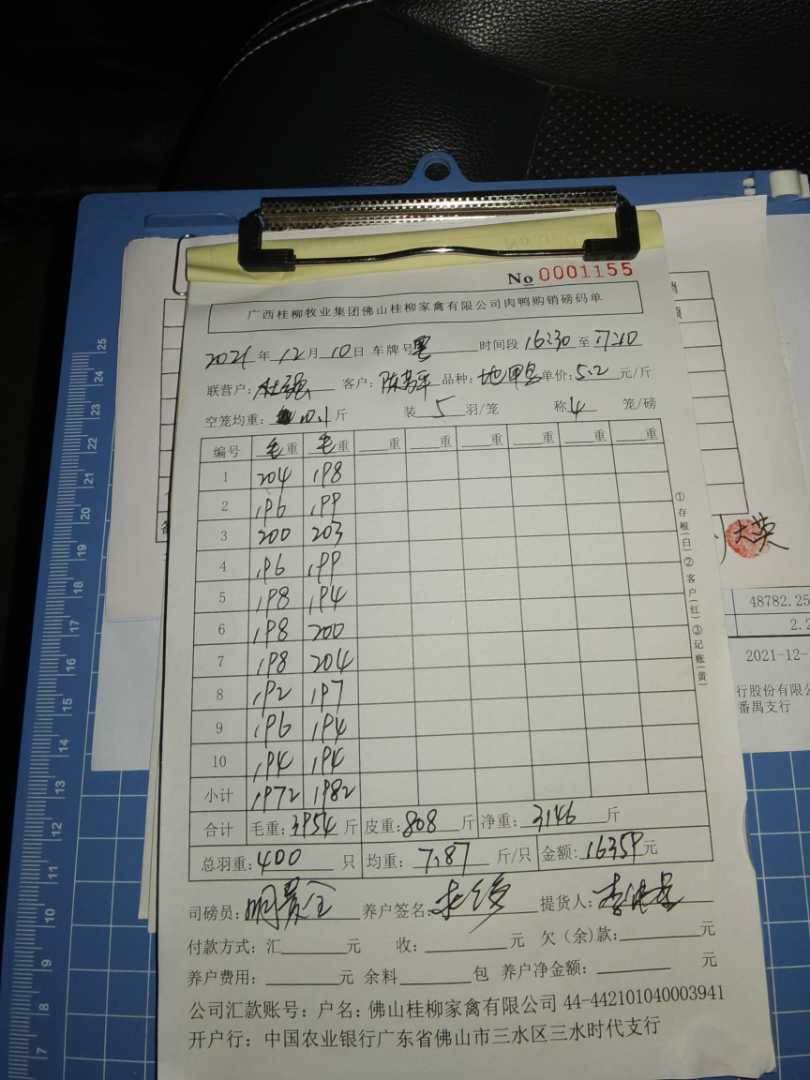 No 0001155
广西桂柳牧业集团佛山桂柳家禽有限公司肉鸭购销磅码单
2021年12月10日 车牌号 时间段16:30至17:20
联营户: 客户: 品种: 单价:5.2元/斤
空笼均重:10.1斤 装5羽/笼 称4笼/磅
编号 毛重 毛重 重 重 重 重 重 重
1 204 198
2 196 199
3 200 203
4 196 199
5 198 194
6 198 200
7 198 204
8 192 197
9 196 194
10 194 194
小计 1972 1982
合计 毛重:3954斤 皮重:808斤 净重:3146斤
总羽重:400只 均重:7.87斤/只 金额:16359元
司磅员: 养户签名: 提货人:
付款方式:汇 元 收: 元 欠(余)款: 元
养户费用: 元 余料 包 养户净金额: 元
公司汇款账号:户名:佛山桂柳家禽有限公司 44-442101040003941
开户行:中国农业银行广东省佛山市三水区三水时代支行
①存根(白)②客户(红)③记账(黄)
大英
48782.25
2.2
2021-12-
行股份有限公
番禺支行